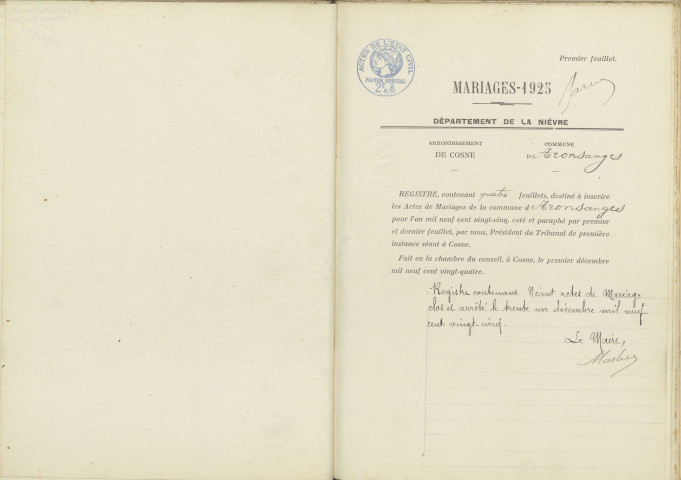 Premier feuillet.
ACTES DE L'ETAT CIVIL
PAPIER SPÉCIAL
MARIAGES-1925
DÉPARTEMENT DE LA NIÈVRE
ARRONDISSEMENT
DE COSNE
COMMUNE
D'Azonsanges
REGISTRE, contenant quatre feuillets, destiné à inscrire
les Actes de Mariages de la commune d'Azonsanges
pour l'an mil neuf cent vingt-cinq, coté et paraphé par premier
et dernier feuillet, par nous, Président du Tribunal de première
instance séant à Cosne.
Fait en la chambre du conseil, à Cosne, le premier décembre
mil neuf cent vingt-quatre.
Registre contenant Néant actes de Mariage
clos et arrêté le trente un décembre mil neuf
cent vingt-neuf.
Le Maire,